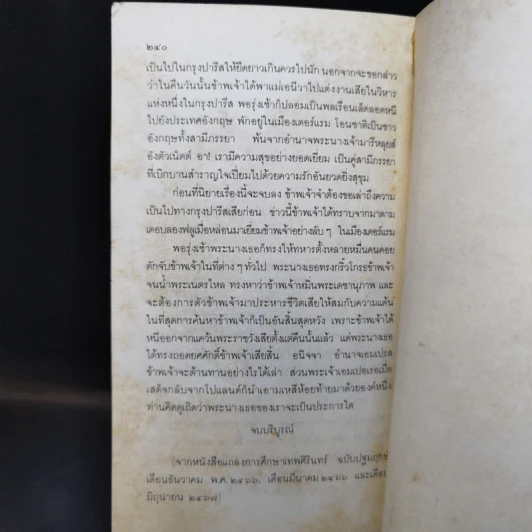 ๒๔๐
เป็นไปในกรุงปารีสให้ยืดยาวเกินควรไปนัก นอกจากจะขอกล่าว
ว่าในคืนวันนั้นข้าพเจ้าได้พาแม่เอนีวาไปแต่งงานเสียในวิหาร
แห่งหนึ่งในกรุงปารีส พอรุ่งเช้าก็ปลอมเป็นพลเรือนเล็ดลอดหนี
ไปยังประเทศอังกฤษ พักอยู่ในเมืองเดอร์แรม โอนชาติเป็นชาว
อังกฤษทั้งสามีภรรยา พ้นจากอำนาจพระนางเจ้ามารีหลุยส์
อังตัวเน็ตต์ อา! เรามีความสุขอย่างยอดเยี่ยม เป็นคู่สามีภรรยา
ที่เบิกบานสำราญใจเปี่ยมไปด้วยความรักอันยวดยิ่งสุขุม
ก่อนที่นิยายเรื่องนี้จะจบลง ข้าพเจ้าจำต้องขอเล่าถึงความ
เป็นไปทางกรุงปารีสเสียก่อน ข่าวนี้ข้าพเจ้าได้ทราบจากมาดาม
เดอบลองฟลูเมื่อหล่อนมาเยี่ยมข้าพเจ้าอย่างลับๆ ในเมืองเดอร์แรม
พอรุ่งเช้าพระนางเธอก็ทรงให้ทหารตั้งหลายหมื่นคนคอย
ดักจับข้าพเจ้าในที่ต่างๆ ทั่วไป พระนางเธอทรงกริ้วโกรธข้าพเจ้า
จนน้ำพระเนตรไหล ทรงหาว่าข้าพเจ้าหมิ่นพระเดชานุภาพ และ
จะต้องการตัวข้าพเจ้ามาประหารชีวิตเสียให้สมกับความแค้น
ในที่สุดการค้นหาข้าพเจ้าก็เป็นอันสิ้นสุดหวัง เพราะข้าพเจ้าได้
หนีออกจากแคว้นพระราชวังเสียตั้งแต่คืนนั้นแล้ว แต่พระนางเธอ
ได้ทรงถอดยศศักดิ์ข้าพเจ้าเสียสิ้น อนิจจา อำนาจเอมเปรส
ข้าพเจ้าจะต้านทานอย่างไรได้เล่า ส่วนพระเจ้าเอมเปอเรอเมื่อ
เสด็จกลับจากโปแลนด์ก็นำเอามเหสีห้อยท้ายมาด้วยองค์หนึ่ง
ท่านคิดดูเถิดว่าพระนางเธอของเราจะเป็นประการใด
จบบริบูรณ์
(จากหนังสือแถลงการศึกษาเทพศิรินทร์ ฉบับปฐมฤกษ์
เดือนธันวาคม พ.ศ. ๒๔๖๖, เดือนมีนาคม ๒๔๖๖ และเดือน
มิถุนายน ๒๔๖๗)